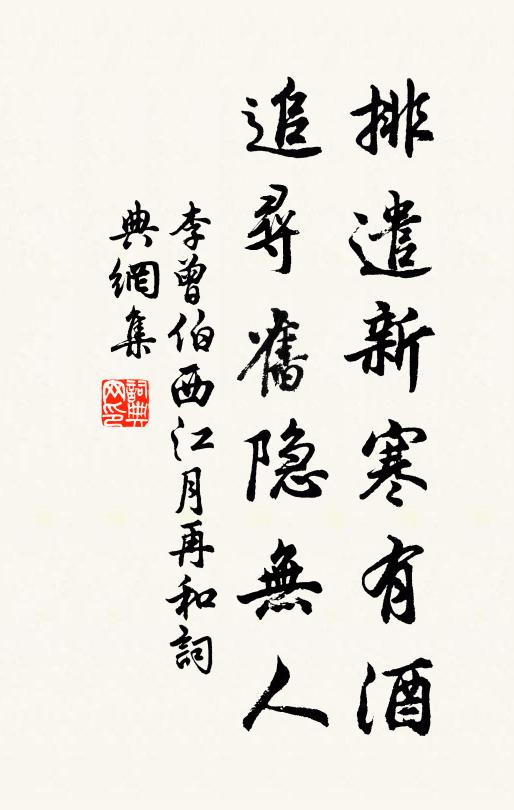 排遣新寒有酒
追尋舊隐無人
李曾伯西江月再和詞
典網集
詞典网印